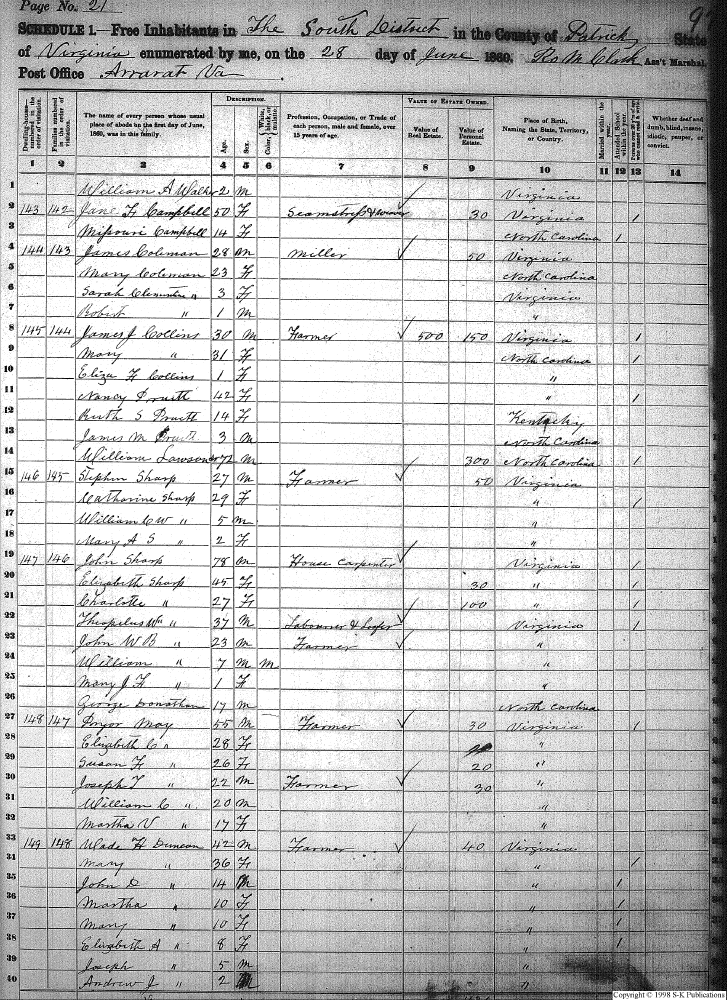 Page No. 21
SCHEDULE 1.—Free Inhabitants in The South District in the County of Patrick State
of Virginia enumerated by me, on the 28 day of June 1860. Ro M Clark Ass't Marshal.
Post Office Ararat Va
DESCRIPTION. VALUE OF ESTATE OWNED.
Dwelling-houses numbered in the order of visitation. Families numbered in the order of visitation. The name of every person whose usual place of abode on the first day of June, 1860, was in this family. Age. Sex. Color, White, black, or mulatto. Profession, Occupation, or Trade of each person, male and female, over 15 years of age. Value of Real Estate. Value of Personal Estate. Place of Birth, Naming the State, Territory, or Country. Married within the year. Attended School within the year. Whether deaf and dumb, blind, insane, idiotic, pauper, or convict.
1 2 3 4 5 6 7 8 9 10 11 12 13 14
1 William A Walker 2 m Virginia
2 143 142 Jane F Campbell 50 F Seamstress & weaver 30 Virginia 1
3 Missouri Campbell 14 F North Carolina 1
4 144 143 James Coleman 28 m Miller 50 Virginia
5 Mary Coleman 23 F North Carolina
6 Sarah Clementine " 3 F Virginia
7 Robert " 1 m "
8 145 144 James J Collins 30 m Farmer 500 150 Virginia 1
9 Mary " 31 F North Carolina 1
10 Eliza F Collins 1 F "
11 Nancy Pruett 42 F " 1
12 Ruth S Pruett 14 F Kentucky
13 James M Pruett 3 m North Carolina
14 William Lawson 72 m 300 North Carolina 1
15 146 145 Stephen Sharp 27 m Farmer 50 Virginia
16 Catharine Sharp 29 F " 1
17 William C W " 5 m "
18 Mary A S " 2 F "
19 147 146 John Sharp 78 m House Carpenter Virginia 1
20 Elizabeth Sharp 45 F 30 " 1
21 Charlotte " 27 F 100 " 1
22 Theopelus Wm " 37 m Labourer & Virginia 1
23 John W B " 23 m Farmer "
24 William " 7 m m "
25 Mary J F " 1 F "
26 George Donathan 17 m North Carolina
27 148 147 Pryor May 55 m Farmer 30 Virginia 1
28 Elizabeth C " 28 F "
29 Susan F " 26 F 20 "
30 Joseph T " 22 m Farmer 30 "
31 William C " 20 m "
32 Martha V " 17 F "
33 149 148 Wade H Duncan 42 m Farmer 40 Virginia
34 Mary " 36 F " 1
35 John D " 14 m " 1
36 Martha " 10 F " 1
37 Mary " 10 F " 1
38 Elizabeth A " 8 F " 1
39 Joseph " 5 m "
40 Andrew J " 2 m "
Copyright © 1998 S-K Publications